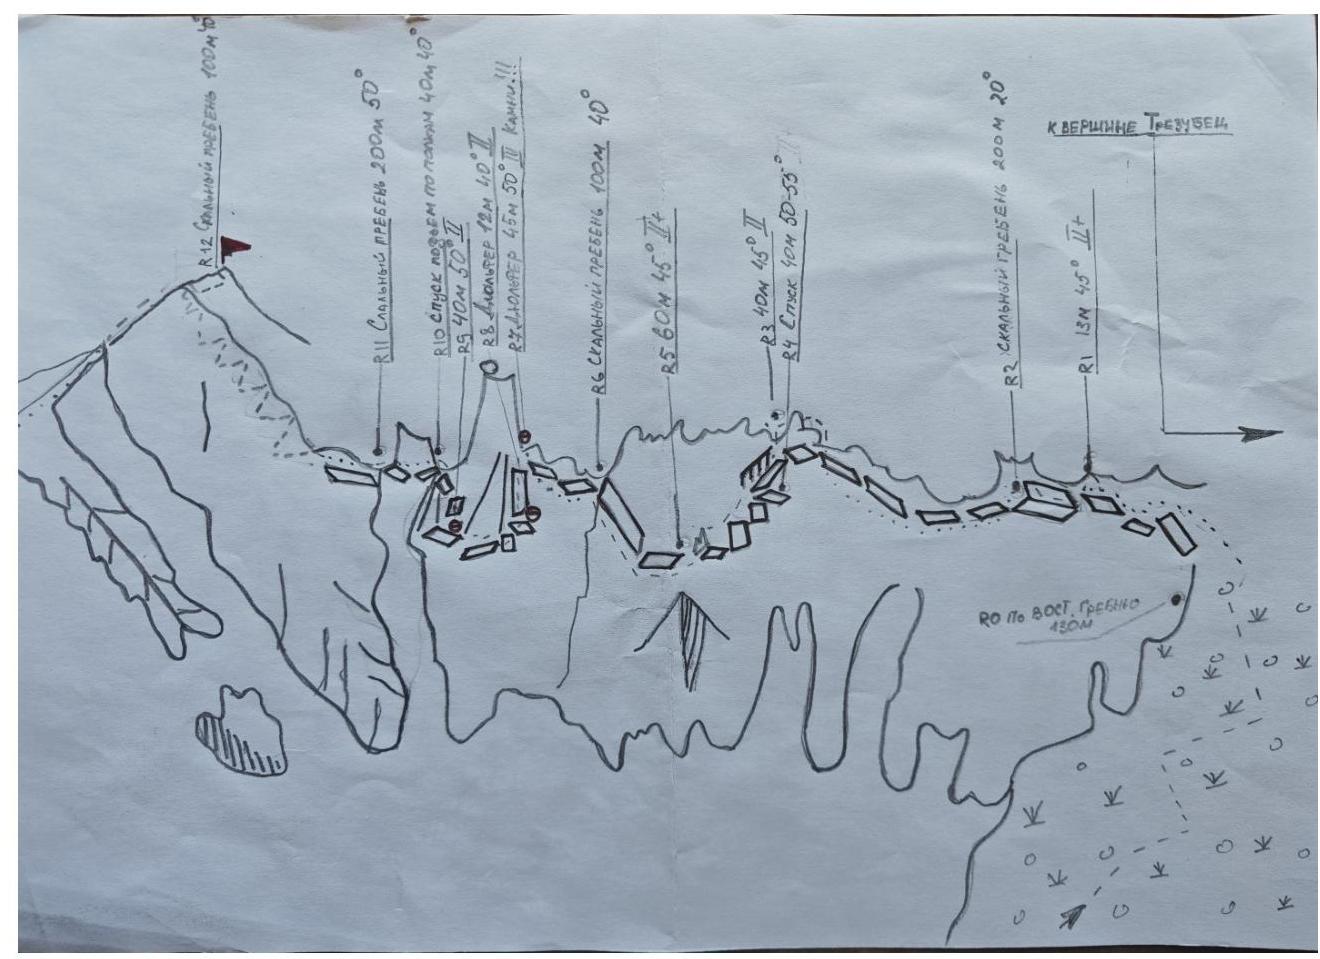 R12 Скальный гребень 100м 40°
R11 Скальный гребень 200м 50°
R10 Спуск подъем по полкам 40м 40°
R9 40м 50° II
R8 Дюльфер 12м 40° II
R7 Дюльфер 45м 50° III Камни!!!
R6 Скальный гребень 100м 40°
R5 60м 45° II+
R3 40м 45° II
R4 Спуск 40м 50-55°
R2 Скальный гребень 200м 20°
R1 13м 45° II+
К вершине Трезубец
R0 По вост. гребню
130м